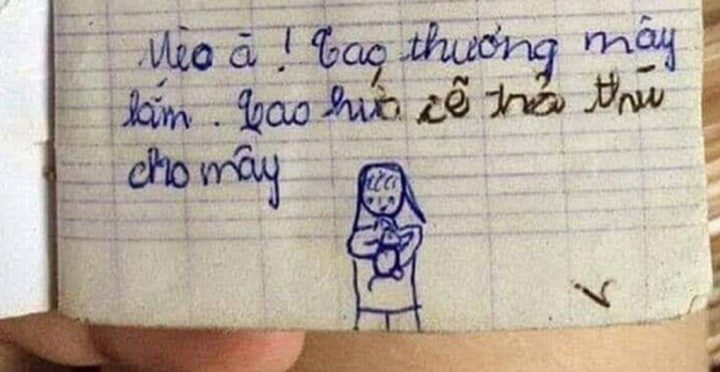 Mèo à ! Tao thương mầy
lắm . Tao hứa sẽ trả thù
cho mầy